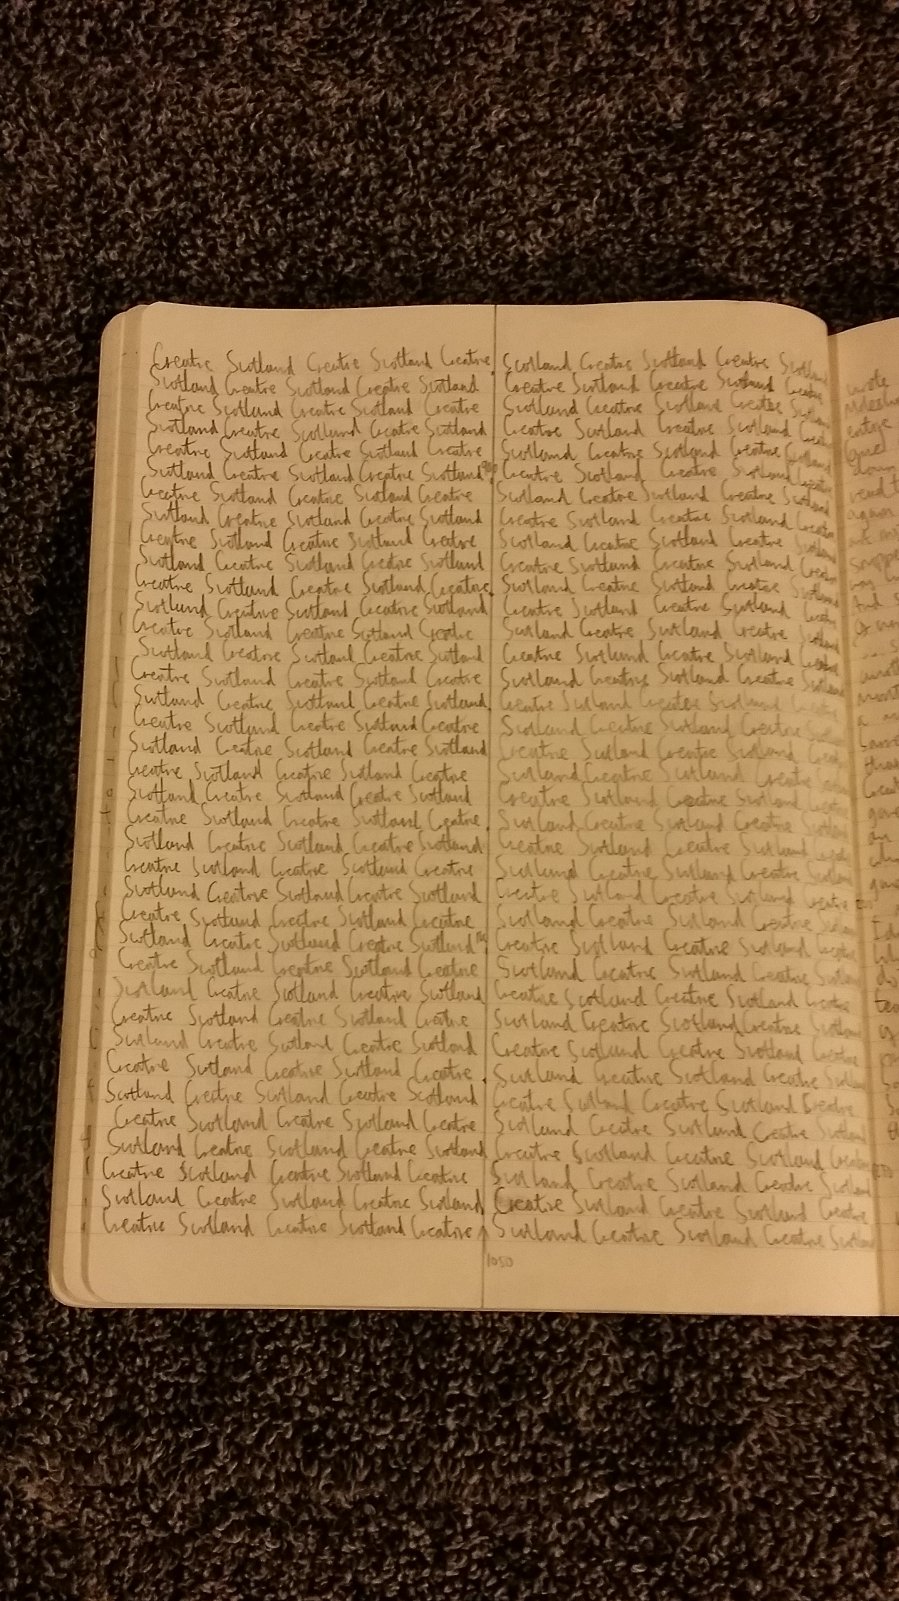 Creative Scotland Creative Scotland Creative
Scotland Creative Scotland Creative Scotland
Creative Scotland Creative Scotland Creative
Scotland Creative Scotland Creative Scotland
Creative Scotland Creative Scotland Creative
Scotland Creative Scotland Creative Scotland
Creative Scotland Creative Scotland Creative
Scotland Creative Scotland Creative Scotland
Creative Scotland Creative Scotland Creative
Scotland Creative Scotland Creative Scotland
Creative Scotland Creative Scotland Creative
Scotland Creative Scotland Creative Scotland
Creative Scotland Creative Scotland Creative
Scotland Creative Scotland Creative Scotland
Creative Scotland Creative Scotland Creative
Scotland Creative Scotland Creative Scotland
Creative Scotland Creative Scotland Creative
Scotland Creative Scotland Creative Scotland
Creative Scotland Creative Scotland Creative
Scotland Creative Scotland Creative Scotland
Creative Scotland Creative Scotland Creative
Scotland Creative Scotland Creative Scotland
Creative Scotland Creative Scotland Creative
Scotland Creative Scotland Creative Scotland
Creative Scotland Creative Scotland Creative
Scotland Creative Scotland Creative Scotland
Creative Scotland Creative Scotland Creative
Scotland Creative Scotland Creative Scotland
Creative Scotland Creative Scotland Creative
Scotland Creative Scotland Creative Scotland
Creative Scotland Creative Scotland Creative
Scotland Creative Scotland Creative Scotland
Creative Scotland Creative Scotland Creative
Scotland Creative Scotland Creative Scotland
Creative Scotland Creative Scotland Creative
Scotland Creative Scotland Creative Scotland
Creative Scotland Creative Scotland Creative
1050
Scotland Creative Scotland Creative Scotland
Creative Scotland Creative Scotland Creative
Scotland Creative Scotland Creative Scotland
Creative Scotland Creative Scotland Creative
Scotland Creative Scotland Creative Scotland
Creative Scotland Creative Scotland Creative
Scotland Creative Scotland Creative Scotland
Creative Scotland Creative Scotland Creative
Scotland Creative Scotland Creative Scotland
Creative Scotland Creative Scotland Creative
Scotland Creative Scotland Creative Scotland
Creative Scotland Creative Scotland Creative
Scotland Creative Scotland Creative Scotland
Creative Scotland Creative Scotland Creative
Scotland Creative Scotland Creative Scotland
Creative Scotland Creative Scotland Creative
Scotland Creative Scotland Creative Scotland
Creative Scotland Creative Scotland Creative
Scotland Creative Scotland Creative Scotland
Creative Scotland Creative Scotland Creative
Scotland Creative Scotland Creative Scotland
Creative Scotland Creative Scotland Creative
Scotland Creative Scotland Creative Scotland
Creative Scotland Creative Scotland Creative
Scotland Creative Scotland Creative Scotland
Creative Scotland Creative Scotland Creative
Scotland Creative Scotland Creative Scotland
Creative Scotland Creative Scotland Creative
Scotland Creative Scotland Creative Scotland
Creative Scotland Creative Scotland Creative
Scotland Creative Scotland Creative Scotland
Creative Scotland Creative Scotland Creative
Scotland Creative Scotland Creative Scotland
Creative Scotland Creative Scotland Creative
Scotland Creative Scotland Creative Scotland
Creative Scotland Creative Scotland Creative
Scotland Creative Scotland Creative Scotland